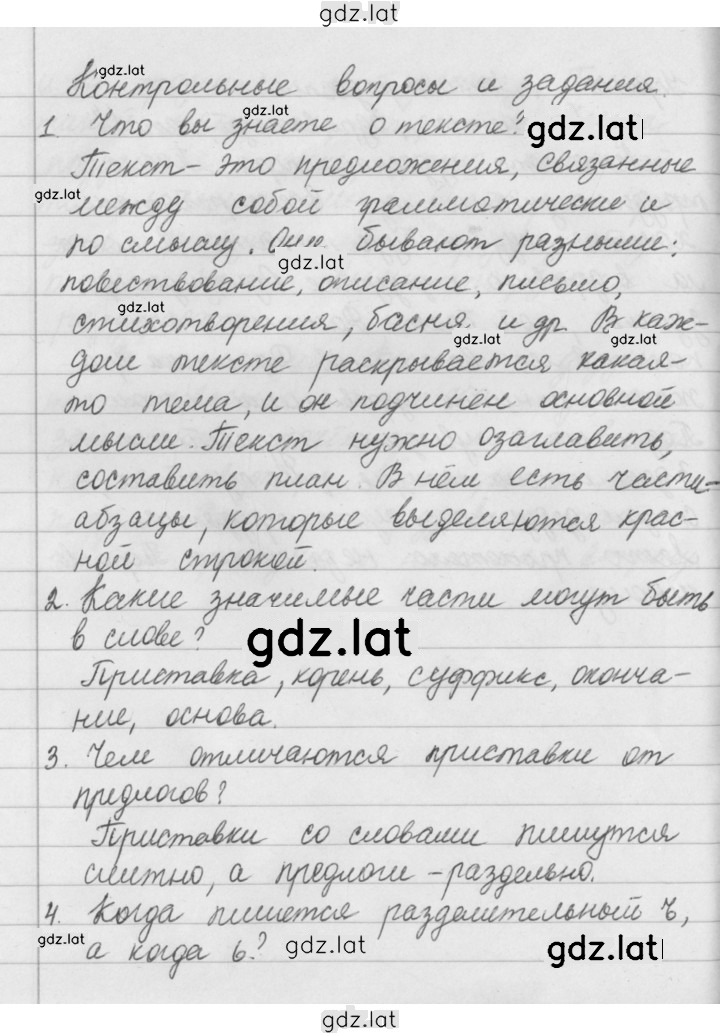 gdz.lat
gdz.lat
Контрольные вопросы и задания.
gdz.lat
1. Что вы знаете о тексте?
gdz.lat
Текст - это предложения, связанные
gdz.lat
между собой грамматически и
по смыслу. бывают разными:
gdz.lat
повествование, описание, письмо,
gdz.lat
стихотворения, басня и др. В каж-
gdz.lat gdz.lat
дом тексте раскрывается какая-
то тема, и он подчинён основной
мысли. Текст нужно озаглавить,
составить план. В нём есть части-
абзацы, которые выделяются крас-
ной строкой.
2. Какие значимые части могут быть
в слове?
gdz.lat
Приставка, корень, суффикс, оконча-
ние, основа.
3. Чем отличаются приставки от
предлогов?
Приставки со словами пишутся
слитно, а предлоги - раздельно.
4. Когда пишется разделительный ъ,
а когда ь?
gdz.lat gdz.lat gdz.lat
gdz.lat